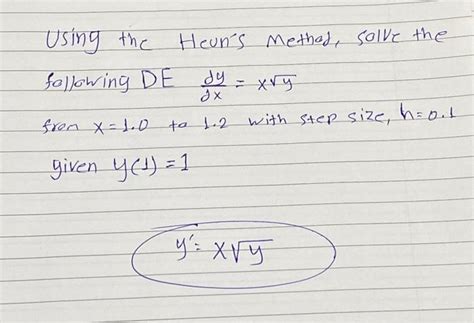 Using the Heun's Method, solve the
following DE dy/dx = x√y
from x=1.0 to 1.2 with step size, h=0.1
given y(1)=1
y'= x√y